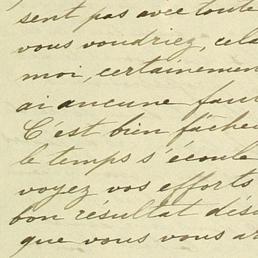 sent pas avec toute
vous voudriez, cela
moi, certainemen
ai aucune fau
C'est bien fâcheu
le temps s'écoule
voyez vos efforts
bon résultat dés
que vous vous